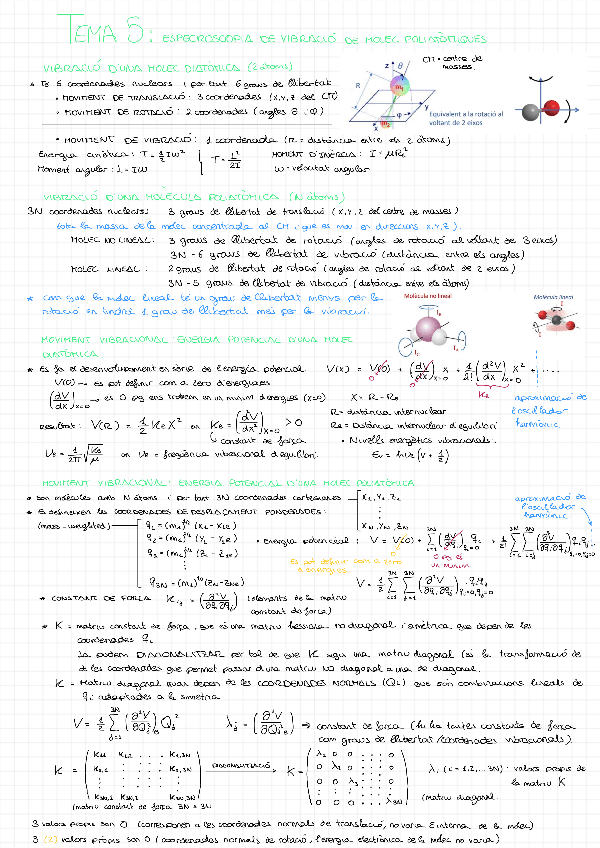 TEMA 5: ESPECROSCOPIA DE VIBRACIÓ DE MOLEC POLIATÒMIQUES
VIBRACIÓ D'UNA MOLEC DIATÒMICA (2 àtoms)
* Té 6 coordenades nuclears i per tant 6 graus de llibertat.
• MOVIMENT DE TRANSLACIÓ: 3 coordenades (X,Y,Z del CM)
• MOVIMENT DE ROTACIÓ: 2 coordenades (angles θ i φ)
CM = centre de masses.
Equivalent a la rotació al voltant de 2 eixos
• MOVIMENT DE VIBRACIÓ: 1 coordenada (R = distància entre els 2 àtoms)
Energia cinètica: T = 1/2 Iω² | T = L²/2I MOMENT D'INÈRCIA: I = μRe²
Moment angular: L = Iω ω = velocitat angular
VIBRACIÓ D'UNA MOLÈCULA POLIATÒMICA (N àtoms)
3N coordenades nuclears: 3 graus de llibertat de translació (X,Y,Z del centre de masses)
tota la massa de la molec concentrada al CM i que es mou en direccions X,Y,Z).
MOLEC NO LINEAL: 3 graus de llibertat de rotació (angles de rotació al voltant de 3 eixos)
3N - 6 graus de llibertat de vibració (distància entre els angles)
MOLEC LINEAL: 2 graus de llibertat de rotació (angles de rotació al voltant de 2 eixos)
3N - 5 graus de llibertat de vibració (distància entre els àtoms)
* Com que la molec lineal té un grau de llibertat menys per la
rotació en tindrà 1 grau de llibertat més per la vibració.
Molècula no lineal
Molècula lineal
MOVIMENT VIBRACIONAL: ENERGIA POTENCIAL D'UNA MOLEC
DIATÒMICA
* Es fa el desenvolupament en sèrie de l'energia potencial V(X) = V(0) + (dV/dX)x=0 X + 1/2! (d²V/dX²)x=0 X² + ....
V(0) → es pot definir com a zero d'energies
(dV/dX)x=0 → és 0 pq ens trobem en un mínim d'energies (X=0) X = R - Re
aproximació de l'oscil·lador harmònic
R = distància internuclear
Re = Distància internuclear d'equilibri
Resultat: V(R) = 1/2 Ke X² on Ke = (d²V/dX²)x=0 > 0
constant de força
• Nivells energètics vibracionals:
νe = 1/2π √(Ke/μ) on νe = freqüència vibracional d'equilibri. Ev = hνe (v + 1/2)
MOVIMENT VIBRACIONAL: ENERGIA POTENCIAL D'UNA MOLEC POLIATÒMICA
* són molècules amb N àtoms i per tant 3N coordenades cartesianes
X1, Y1, Z1
XN, YN, ZN
* Es defineixen les COORDENADES DE DESPLAÇAMENT PONDERADES:
(mass-weighted)
q1 = (m1)^1/2 (X1 - X1e)
q2 = (m1)^1/2 (Y1 - Y1e)
q3 = (m1)^1/2 (Z1 - Z1e)
q3N = (mN)^1/2 (ZN - ZNe)
aproximació de l'oscil·lador harmònic
• energia potencial: V = V(0) + Σ (dV/∂qi)qi=0 qi + 1/2! ΣΣ (∂²V/∂qi∂qj)qi=0,qj=0 qi qj ...
Es pot definir com a zero d'energies
0 pq és un mínim
V = 1/2 ΣΣ (∂²V/∂qi∂qj)qi=0,qj=0 qi qj
* CONSTANT DE FORÇA Kij = (∂²V/∂qi∂qj) (elements de la matriu
constant de força)
* K = matriu constant de força, que és una matriu hessiana no diagonal i simètrica que depèn de les
coordenades qi
La podem DIAGONALITZAR per tal de que K sigui una matriu diagonal (és la transformació de
de les coordenades que permet passar d'una matriu no diagonal a una de diagonal.
K = Matriu diagonal quan depèn de les COORDENADES NORMALS (Qi) que són combinacions lineals de
qi adaptades a la simetria
V = 1/2 Σ (∂²V/∂Qj²)0 Qj² λj = (∂²V/∂Qj²)0 → constant de força (hi ha tantes constants de força
com graus de llibertat/coordenades vibracionals).
K = (K11 K12 .... K1,3N ... K3N,1 K3N,2 K3N,3N) DIAGONALITZACIÓ → K = (λ1 0 0 ... 0, 0 λ2 0 ... 0, 0 0 λ3 ... 0, 0 0 0 ... λ3N) λi (i = 1,2,...3N): valors propis de
la matriu K
(matriu constant de força 3N × 3N
(matriu diagonal.
3 valors propis són 0 (corresponen a les coordenades normals de translació, no varia E interna de la molec)
3 (2) valors propis són 0 (coordenades normals de rotació, l'energia electrònica de la molec no varia)